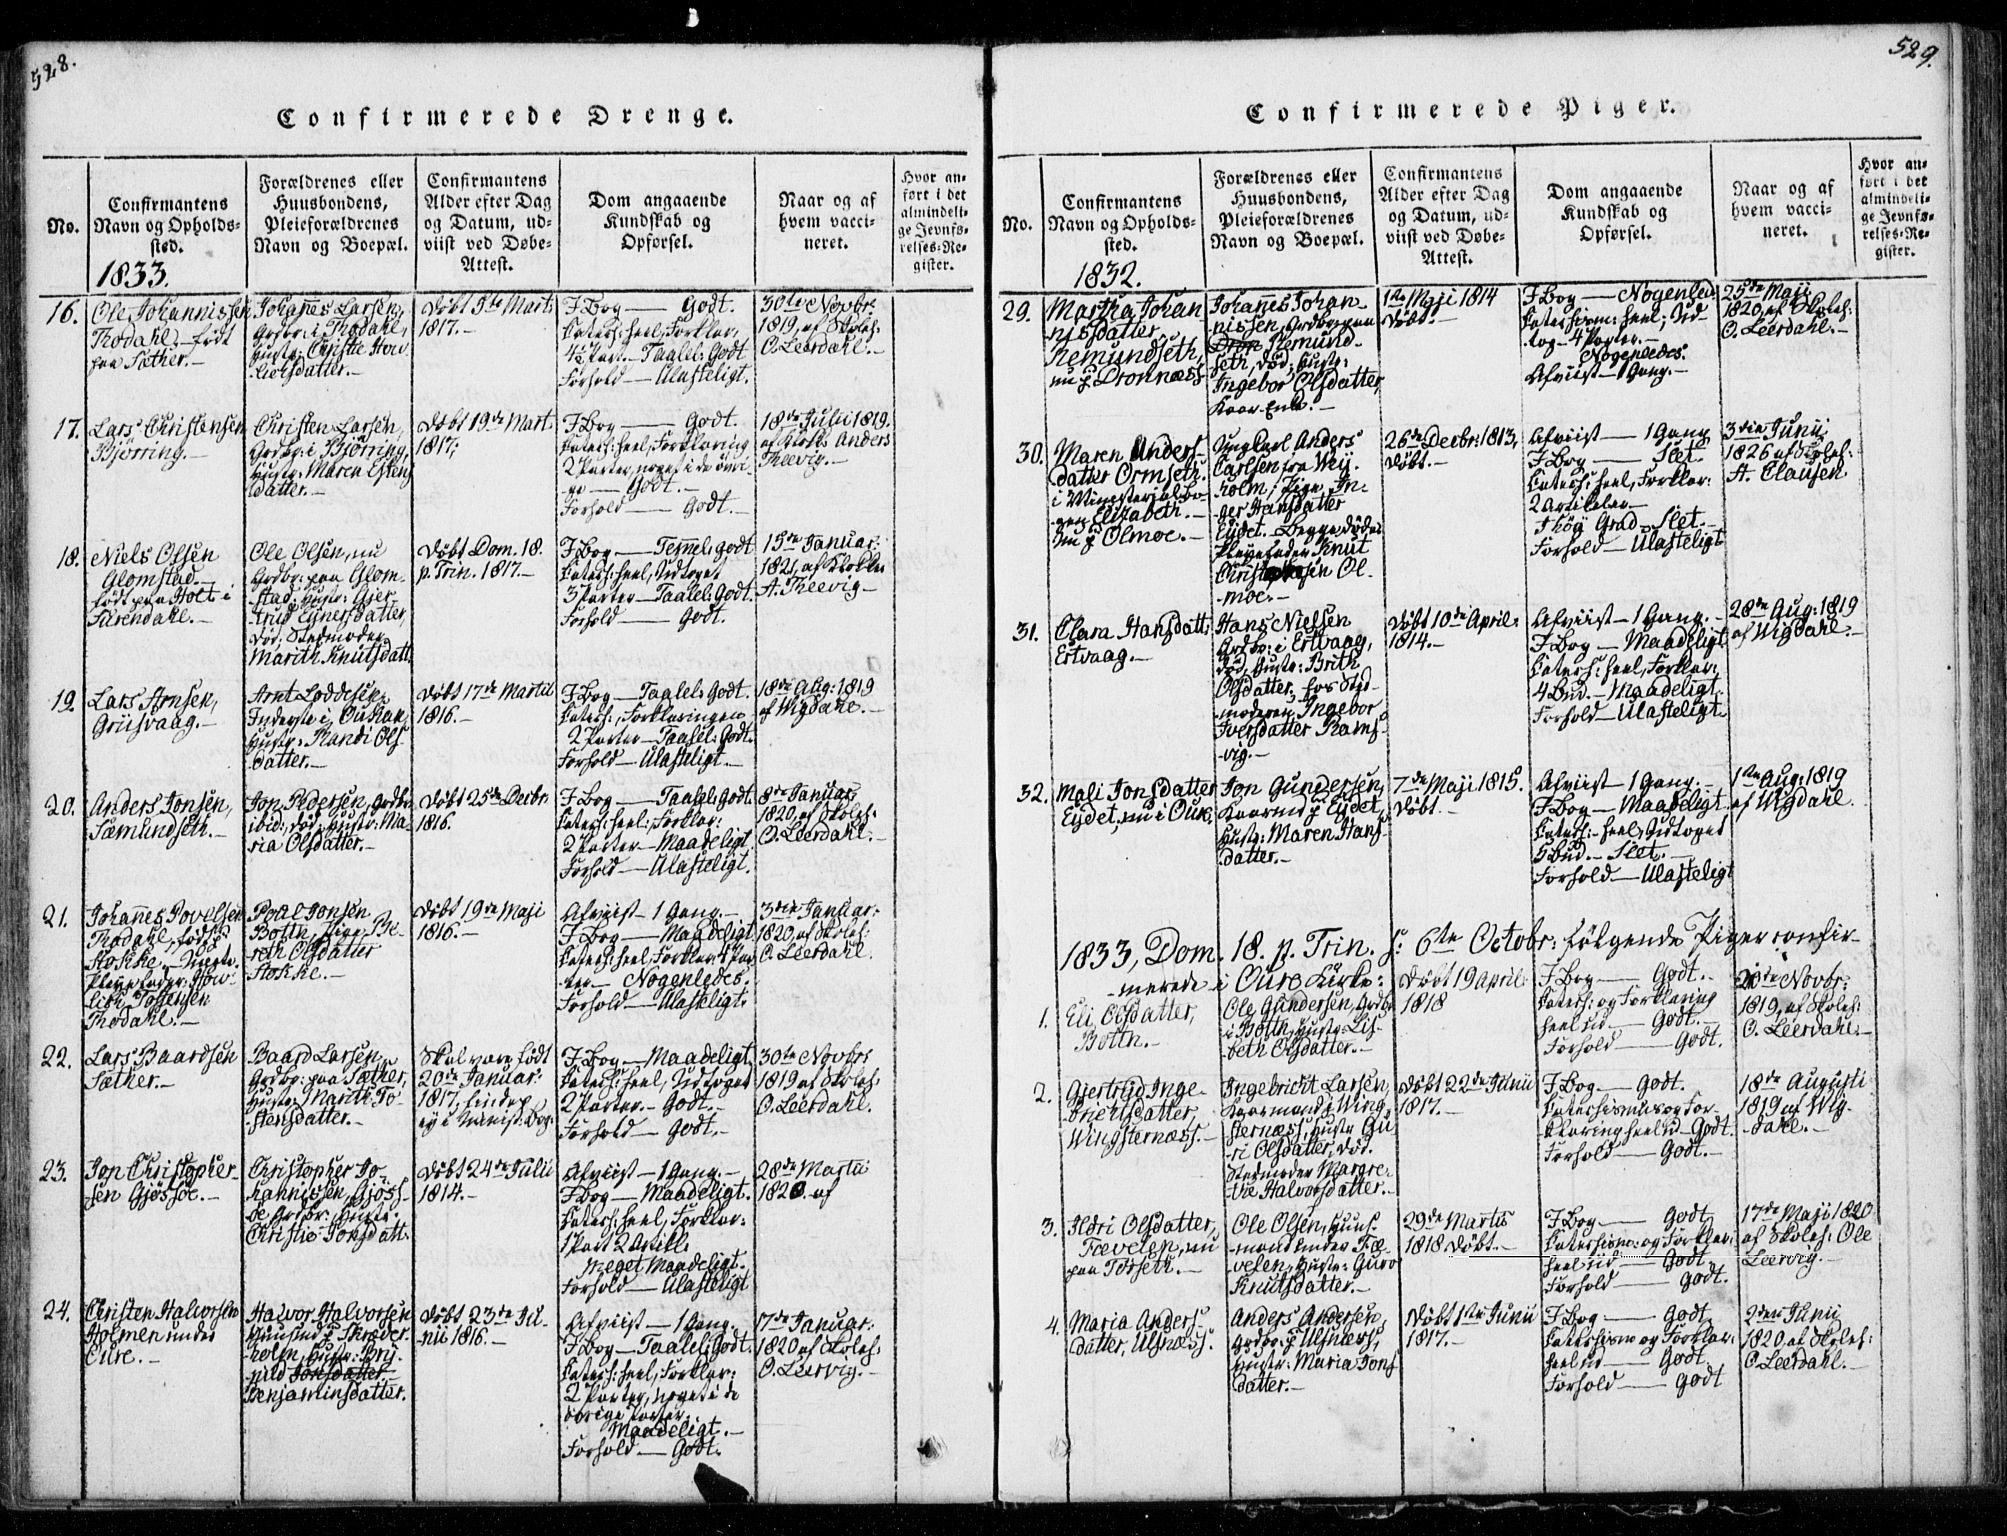 528.
Confirmerede Drenge.
No.
Confirmantens
Navn og Opholds-
sted.
Forældrenes eller
Huusbondens,
Pleieforældrenes
Navn og Boepæl.
Confirmantens
Alder efter Dag
og Datum, ud-
viist ved Døbe-
Attest.
Dom angaaende
Kundskab og
Opførsel.
Naar og af
hvem vacci-
neret.
Hvor an-
ført i det
almindeli-
ge Jevnfø-
relses-Re-
gister.
1833.
16.
Ole Johannissen
Thodahl, født
paa Sæther.-
Johañes Larsen,
Grdbr: i Thodahl,
Hustr: Christie
datter.-
Døbt 5te Marti
1817.-
I Bog — Godt.
Catech: heel, Forklar,
4½ Part.- Taalel: Godt
Forhold — Ulasteligt.
30te Novbr.
1819, af Skoleh:
O. Leerdahl.-
17.
Lars Christensen
Bjørring.-
Christen Larsen,
Grdbr: i Bjørring,
Hustr: Maren
datter.-
Døbt 19de Mart.
1817,
I Bog — Godt.
Catech: heel, Forklaring
2 Parter, noget i de øvri-
ge — Godt.-
Forhold — Godt.-
18de Julii 1819.
af Anders
Theevig.-
18.
Niels Olsen
Glomstad.-
født paa Holt i
Surendahl.-
Ole Olsen, nu
Grdbr: paa Glom-
stad, Hustr: Gjer
trud Ejnersdatter,
død, Stedmoder
Marith Knutsdatt.
Døbt Dom. 18.
p. Trin. 1817.-
I Bog — Temel: godt
Catech: heel, Udtoget
3 Parter — Taalel: Godt.
Forhold — Godt.
15de Januar:
1821, af Klokker
A. Theevig.-
19.
Lars Arnsen,
Griisvaag.-
Arnt Loddesen,
Inderste i
Hustr: Randi Ols
datter.-
Døbt 17de Martii
1816.-
I Bog — Taalel: Godt.
Catech:, Forklaringen
2 Parter — Taalel: Godt.
Forhold — Ulasteligt.-
18de Aug: 1819
af Wigdahl.-
20.
Anders Jonsen,
Sæmundseth.-
Jon Pedersen, Grdbr.
ibid:, død, Hustr: Ma-
ria Olsdatter.-
Døbt 25de Decbr.
1816.
I Bog — Taalel: Godt.
Catech: heel, Forklar:
2 Parter — Maadeligt
Forhold — Ulasteligt.
8de Januar,
1820, af Skoleh:
O. Leerdahl.-
21.
Johañes Povelsen
Thodahl, født p
Hokke.-
Pleyefader:
Thodahl.-
Poul Jonsen
Bottn, Pige Be-
reth Olsdatter
Hokke.-
Døbt 19de Maji
1816.-
Afviist — 1 Gang.-
I Bog — Maadeligt
Catech: heel, Forklar, 4 Par
ter — Nogenledes.-
Forhold — Ulasteligt.
3die Januar:
1820, af Skoleh:
O. Leerdahl.
22.
Lars Baardsen
Sæther.-
Baard Larsen,
Grdbr: paa Sæther,
Hustr: Marith To-
stensdatter.-
Skal være født
20de Januar:
1817, findes
ey i Minist: Bog.
I Bog — Maadeligt
Catech: heel, Udtoget
2 Parter.- Godt.-
Forhold — Godt.-
30te Novbr
1819 af Skoleh:
O. Leerdahl.
23.
Jon Christopher-
sen Gjøssøe.-
Christopher Jo-
hannissen, Gjøss-
øe Grdbr:, Hustr:
Christie Jonsdatt.
Døbt 24de Julii
1814.-
Afviist — 1 Gang.-
I Bog — Maadeligt.
Catech: heel, Forklar:
1 Part 2 Artikl.
Meget Maadeligt.
Forhold — Ulasteligt
28de Martii
1820. af
24.
Christen Halvorsen
Holmen under
Eure.-
Halvor Halvorsen
Huusmd p Skræder-
holm, Hustr: Bry-
nild Jonsdatter
Benjaminsdatter.
Døbt 23de Ju-
nii 1816.-
Afviist — 1 Gang.
I Bog — Taalel: Godt.
Catech: heel, Forklar:
2 Parter, noget i de
øvrige Parter.
Maadeligt.-
Forhold — Godt.
7de Januar:
1820 af Skoleh:
O. Leervig.-
529.
Confirmerede Piger.
No.
Confirmantens
Navn og Opholds-
sted.
Forældrenes eller
Huusbondens,
Pleieforældrenes
Navn og Boepæl.
Confirmantens
Alder efter Dag
og Datum, ud-
viist ved Døbe-
Attest.
Dom angaaende
Kundskab og
Opførsel.
Naar og af
hvem vacci-
neret.
Hvor an-
ført i det
almindeli-
ge Jevnfø-
relses-Re-
gister.
1832.
29.
Martha Johan
nisdatter
Remundseth,
nu p Dronnæss
Johañes Johan-
nissen, Grdbr paa
Remund-
seth, død, Hustr:
Ingebor Olsdatter,
Kaar Enke.-
1te Maji 1814
døbt.-
I Bog — Nogenled
Catechism: heel, Ud-
tog — 4 Parter.-
Nogenledes.
Afviist — 1 Gang.-
25de Maji
1820, af Skoleh:
O. Leerdahl.-
30.
Maren Anders-
datter Ormseth.
i Ministerialbo-
gen Elizabeth.-
nu p Olmoe.-
Ungkarl Anders
Carlsen fra Wej-
holm, Pige In-
ger Hansdatter
Eydet.- Begge døde.
Pleyefader Knut
Christophersen Ol-
moe.-
26de Decbr: 1813,
døbt.-
Afviist — 1 Gang
I Bog — Slet.
Catech: heel, Forklar:
2 Artikler
I høy Grad — Slet.-
Forhold — Ulasteligt
3die Junii
1826 af Skoleh:
A. Clausen.
31.
Clara Hansdatt:
Ertvaag.-
Hans Nielsen
Grdbr: i Ertvaag,
død, Hustr: Brith
Olsdatter, hos Sted-
moderen Ingebor
Iversdatter Rams-
vig.-
Døbt 10de April:
1814.-
Afviist — 1 Gang.-
I Bog — Maadeligt
Catech: heel, Forklar:
4 Bud.- Maadeligt.
Forhold — Ulasteligt
28de Aug: 1819
af Wigdahl.-
32.
Mali Jonsdatter
Eydet, nu i Oure.
Jon Gundersen,
Kaarmd p Eydet,
Hustr: Maren Hans
datter.-
7de Maji 1815.
døbt.-
Afviist — 1 Gang.-
I Bog — Maadeligt
Catech:- heel, Udtoget
5 Bud.- Slet.-
Forhold — Ulasteligt
1te Aug: 1819
af Wigdahl.
1833, Dom. 18. p. Trin. s: 6te Octobr: følgende Piger confir-
merede i Oure Kirke:
1.
Eli Olsdatter,
Bottn.-
Ole Gundersen, Grdbr
i Bottn, Hustr: Lis-
beth Olsdatter.-
Døbt 19 April:
1818
I Bog — Godt.
Catech: og Forklaring
heel ud — Godt.-
Forhold — Godt.
Novbr:
1819, af Skoleh:
O. Leerdahl.-
2.
Gjertrud Inge-
brichtsdatter,
Wingsternæss.-
Ingebricht Larsen,
Kaarmand p Wing
sternæss, Hustr Gu-
ri Olsdatter, død.
Stedmoder Margre-
the Halvorsdatter.-
Døbt 22de Junii
1817.-
I Bog — Godt.
Catechismus og For-
klaring heel ud — Godt.
Forhold — Godt.-
18de Augusti
1819 af Wig-
dahl.-
3.
Ildri Olsdatter,
Fævelen, nu
paa Torseth.-
Ole Olsen, Huus-
mand under Fæ-
velen, Hustr: Guro
Knutsdatter.-
29de Martii
1818 døbt.-
I Bog — Godt
Catechism: og Forklar:
heel ud — Godt.
Forhold — Godt.
17de Maji 1820
af Skoleh: Ole
Leervig.-
4.
Maria Anders-
datter, Ulsnæss.
Anders Andersen,
Grdbr: p Ulsnæss,
Hustr: Maria Jons
datter.-
Døbt 1te Junii
1817.-
I Bog — Godt,
Catechism og Forklar:
heel ud — Godt.
Forhold — Godt
2den Junii
1820 af Skoleh:
O. Leerdahl.-